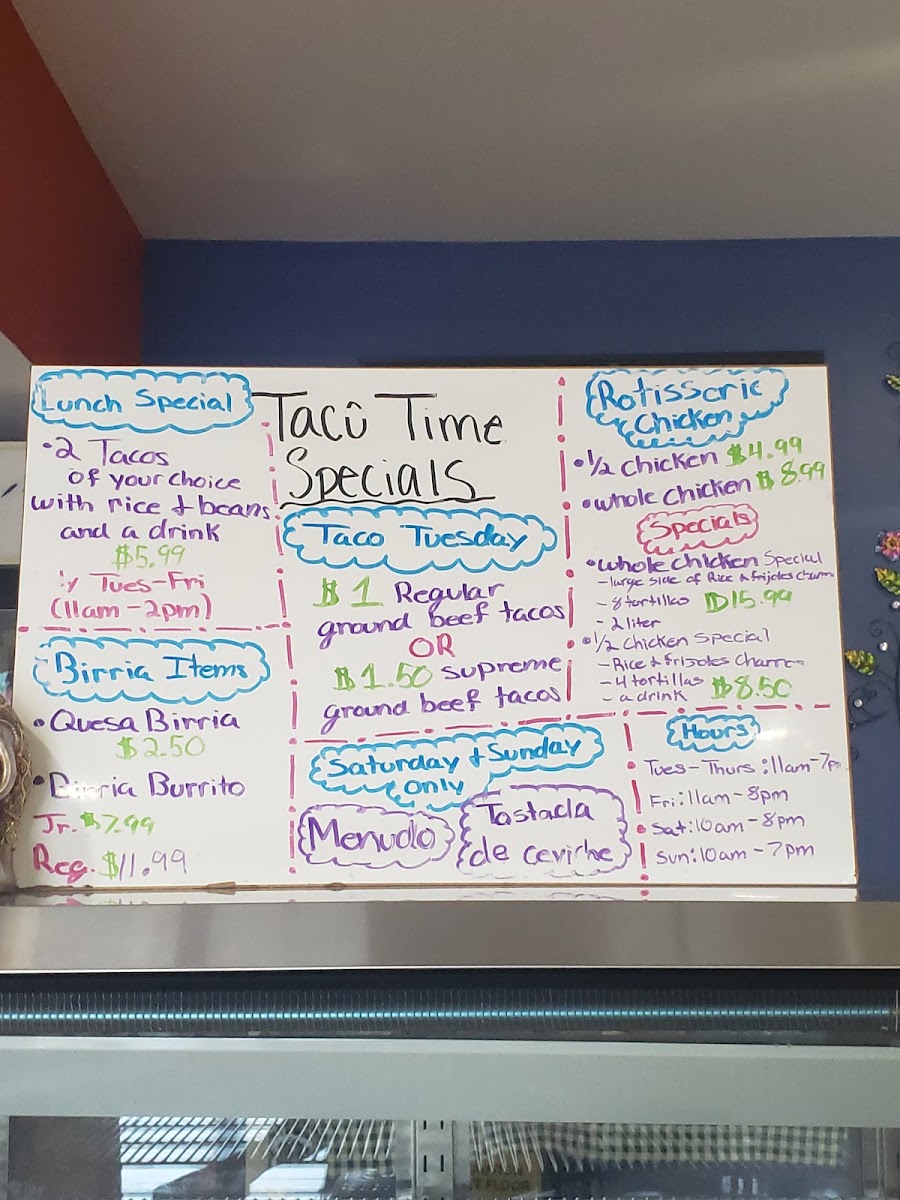 Lunch Special
•2 Tacos
of your choice
with rice & beans
and a drink
$5.99
Tues-Fri
(11am-2pm)
Birria Items
•Quesa Birria
$2.50
•Birria Burrito
Jr. $7.99
Reg. $11.99
Taco Time
Specials
Taco Tuesday
$1 Regular
ground beef tacos
OR
$1.50 supreme
ground beef tacos
Saturday & Sunday
only
Menudo
Tastada
de ceviche
Rotisserie
Chicken
•1/2 chicken $4.99
•whole chicken $8.99
Specials
•whole chicken Special
-large side of Rice & frijoles charro
-8 tortillas $15.99
-2 liter
•1/2 chicken Special
-Rice & frijoles Charro
-4 tortillas $8.50
-a drink
Hours
Tues-Thurs:11am-7pm
Fri:11am-8pm
Sat:10am-8pm
Sun:10am-7pm